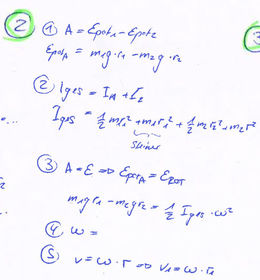 2 ① A = Epot₁ - Epot₂
3
EpotA = m₁g·r₁ - m₂g·r₂
② Iges = I₁ + I₂
Iges = 1/2 m₁r₁² + m₁r₁² + 1/2 m₂r₂² + m₂r²
...
Steiner
③ A = E ⇒ EpotA = EROT
m₁gr₁ - m₂gr₂ = 1/2 Iges·ω²
④ ω =
⑤ v = ω·r ⇒ v₁ = ω·r₁